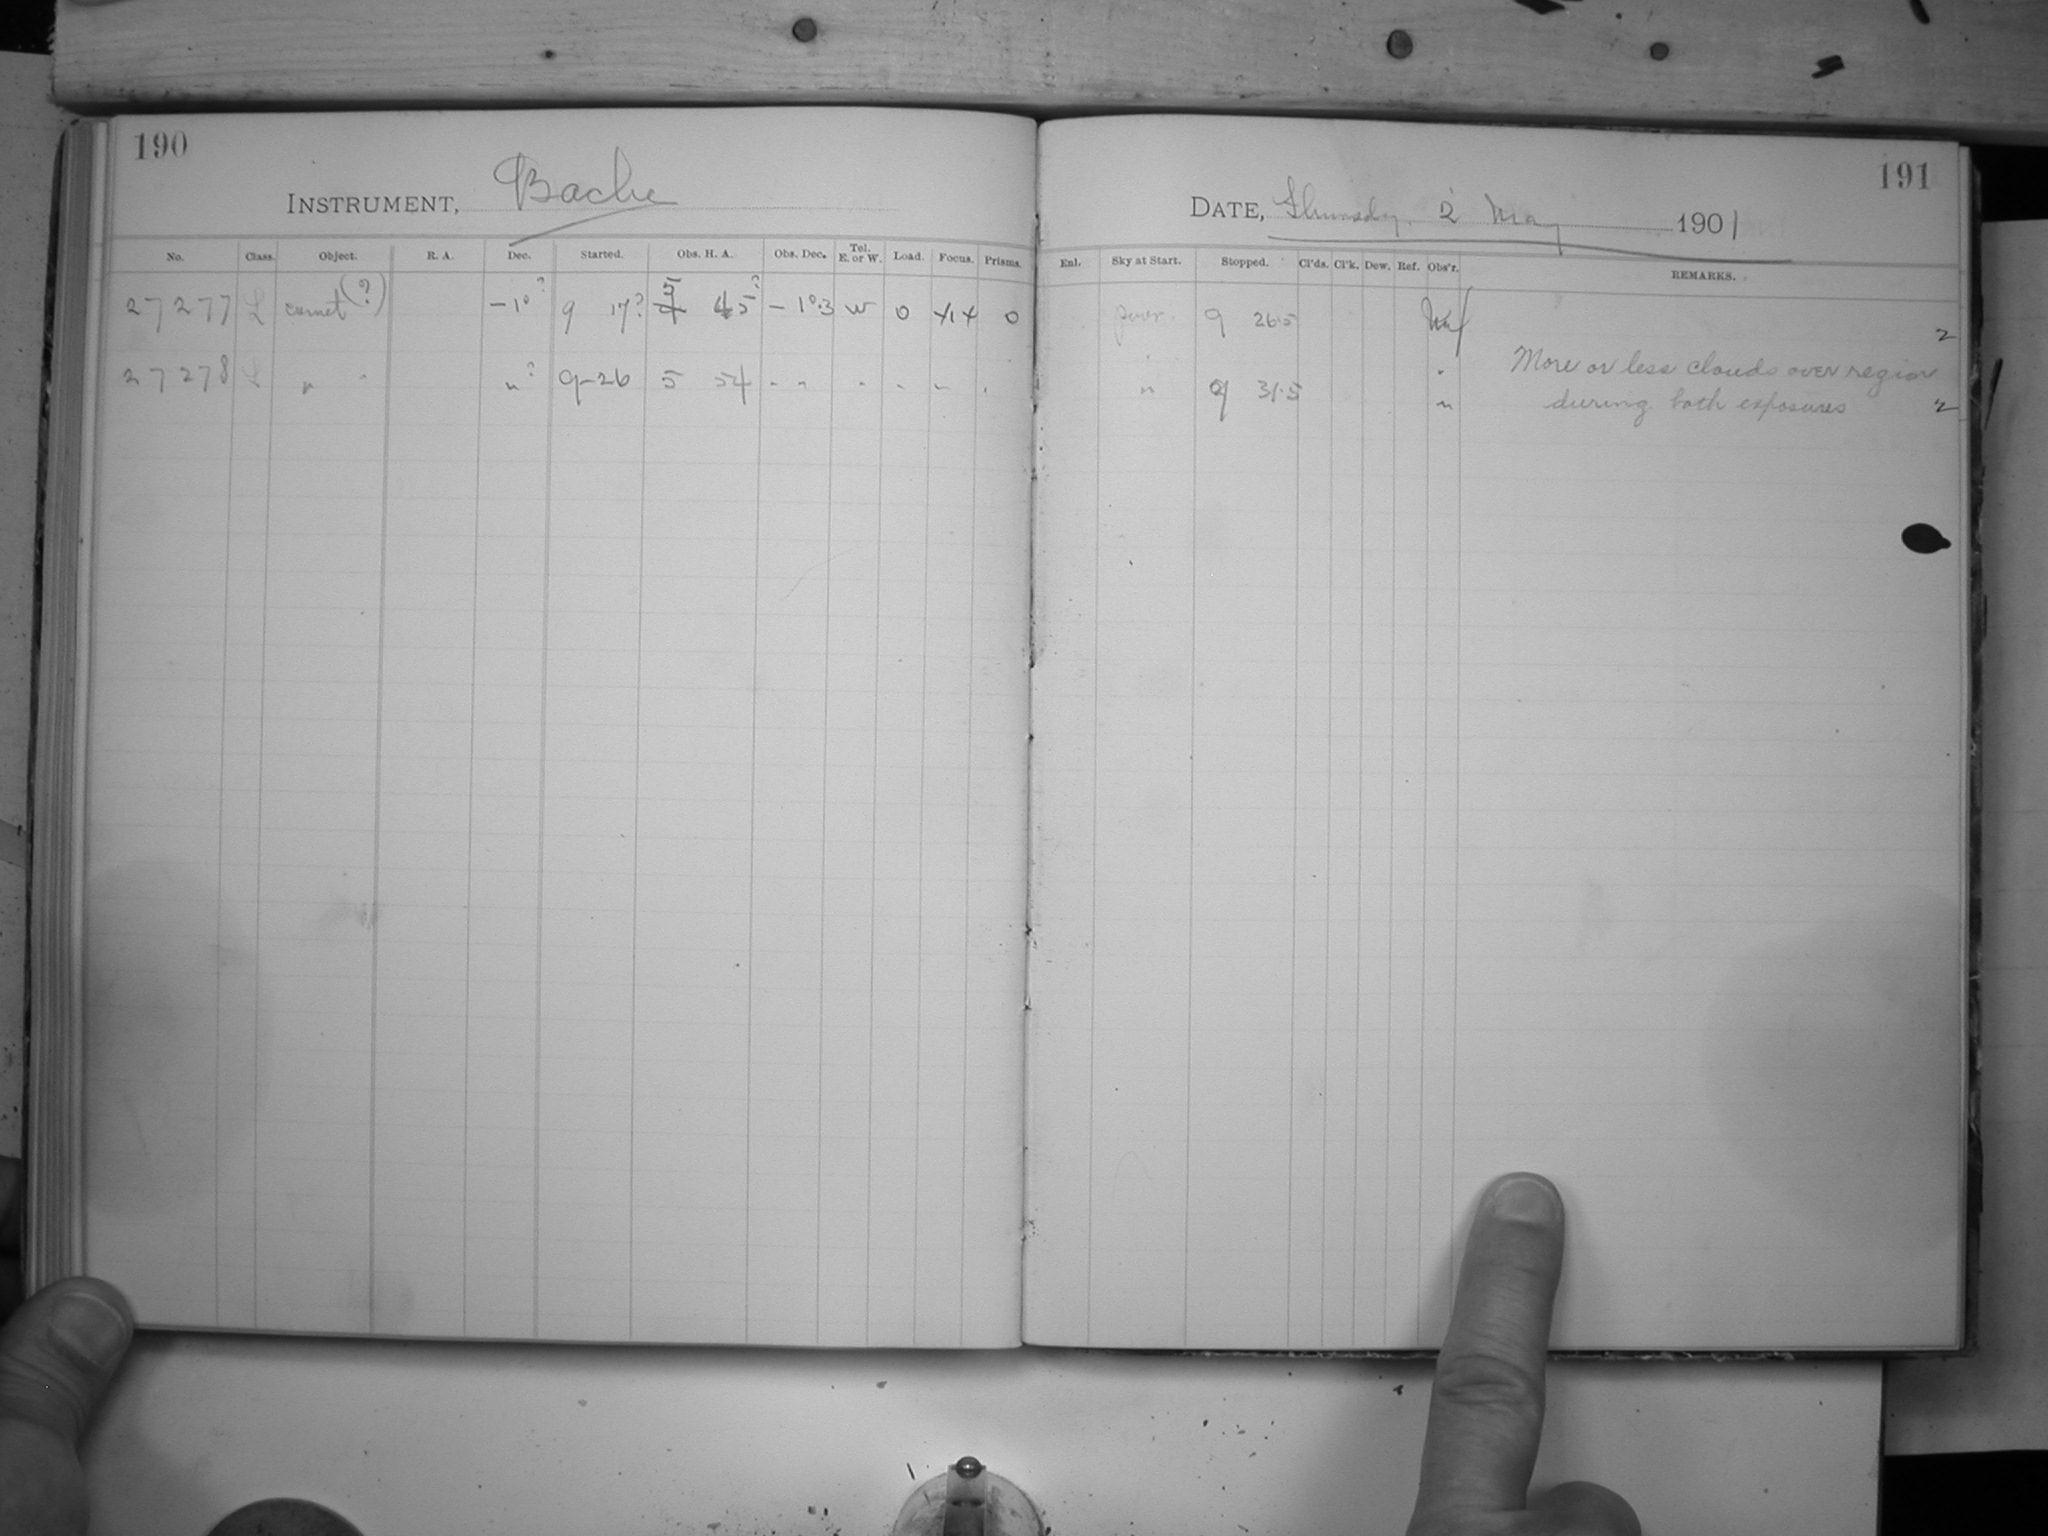 190
INSTRUMENT, Bache
No. Class. Object. R. A. Dec. Started. Obs. H. A. Obs. Dec. Tel. E. or W. Load. Focus. Prisms.
27277 L comet (?) -1°? 9 17? 5 4 45? -1°.3 W 0 0
27278 L " " "? 9-26 5 54 " " " " " "
191
DATE, Thursday. 2 May 1901
Enl. Sky at Start. Stopped. Cl'ds. Cl'k. Dew. Ref. Obs'r. REMARKS.
poor. 9 26.5 2
" 9 31.5 " More or less clouds over region
" during both exposures 2